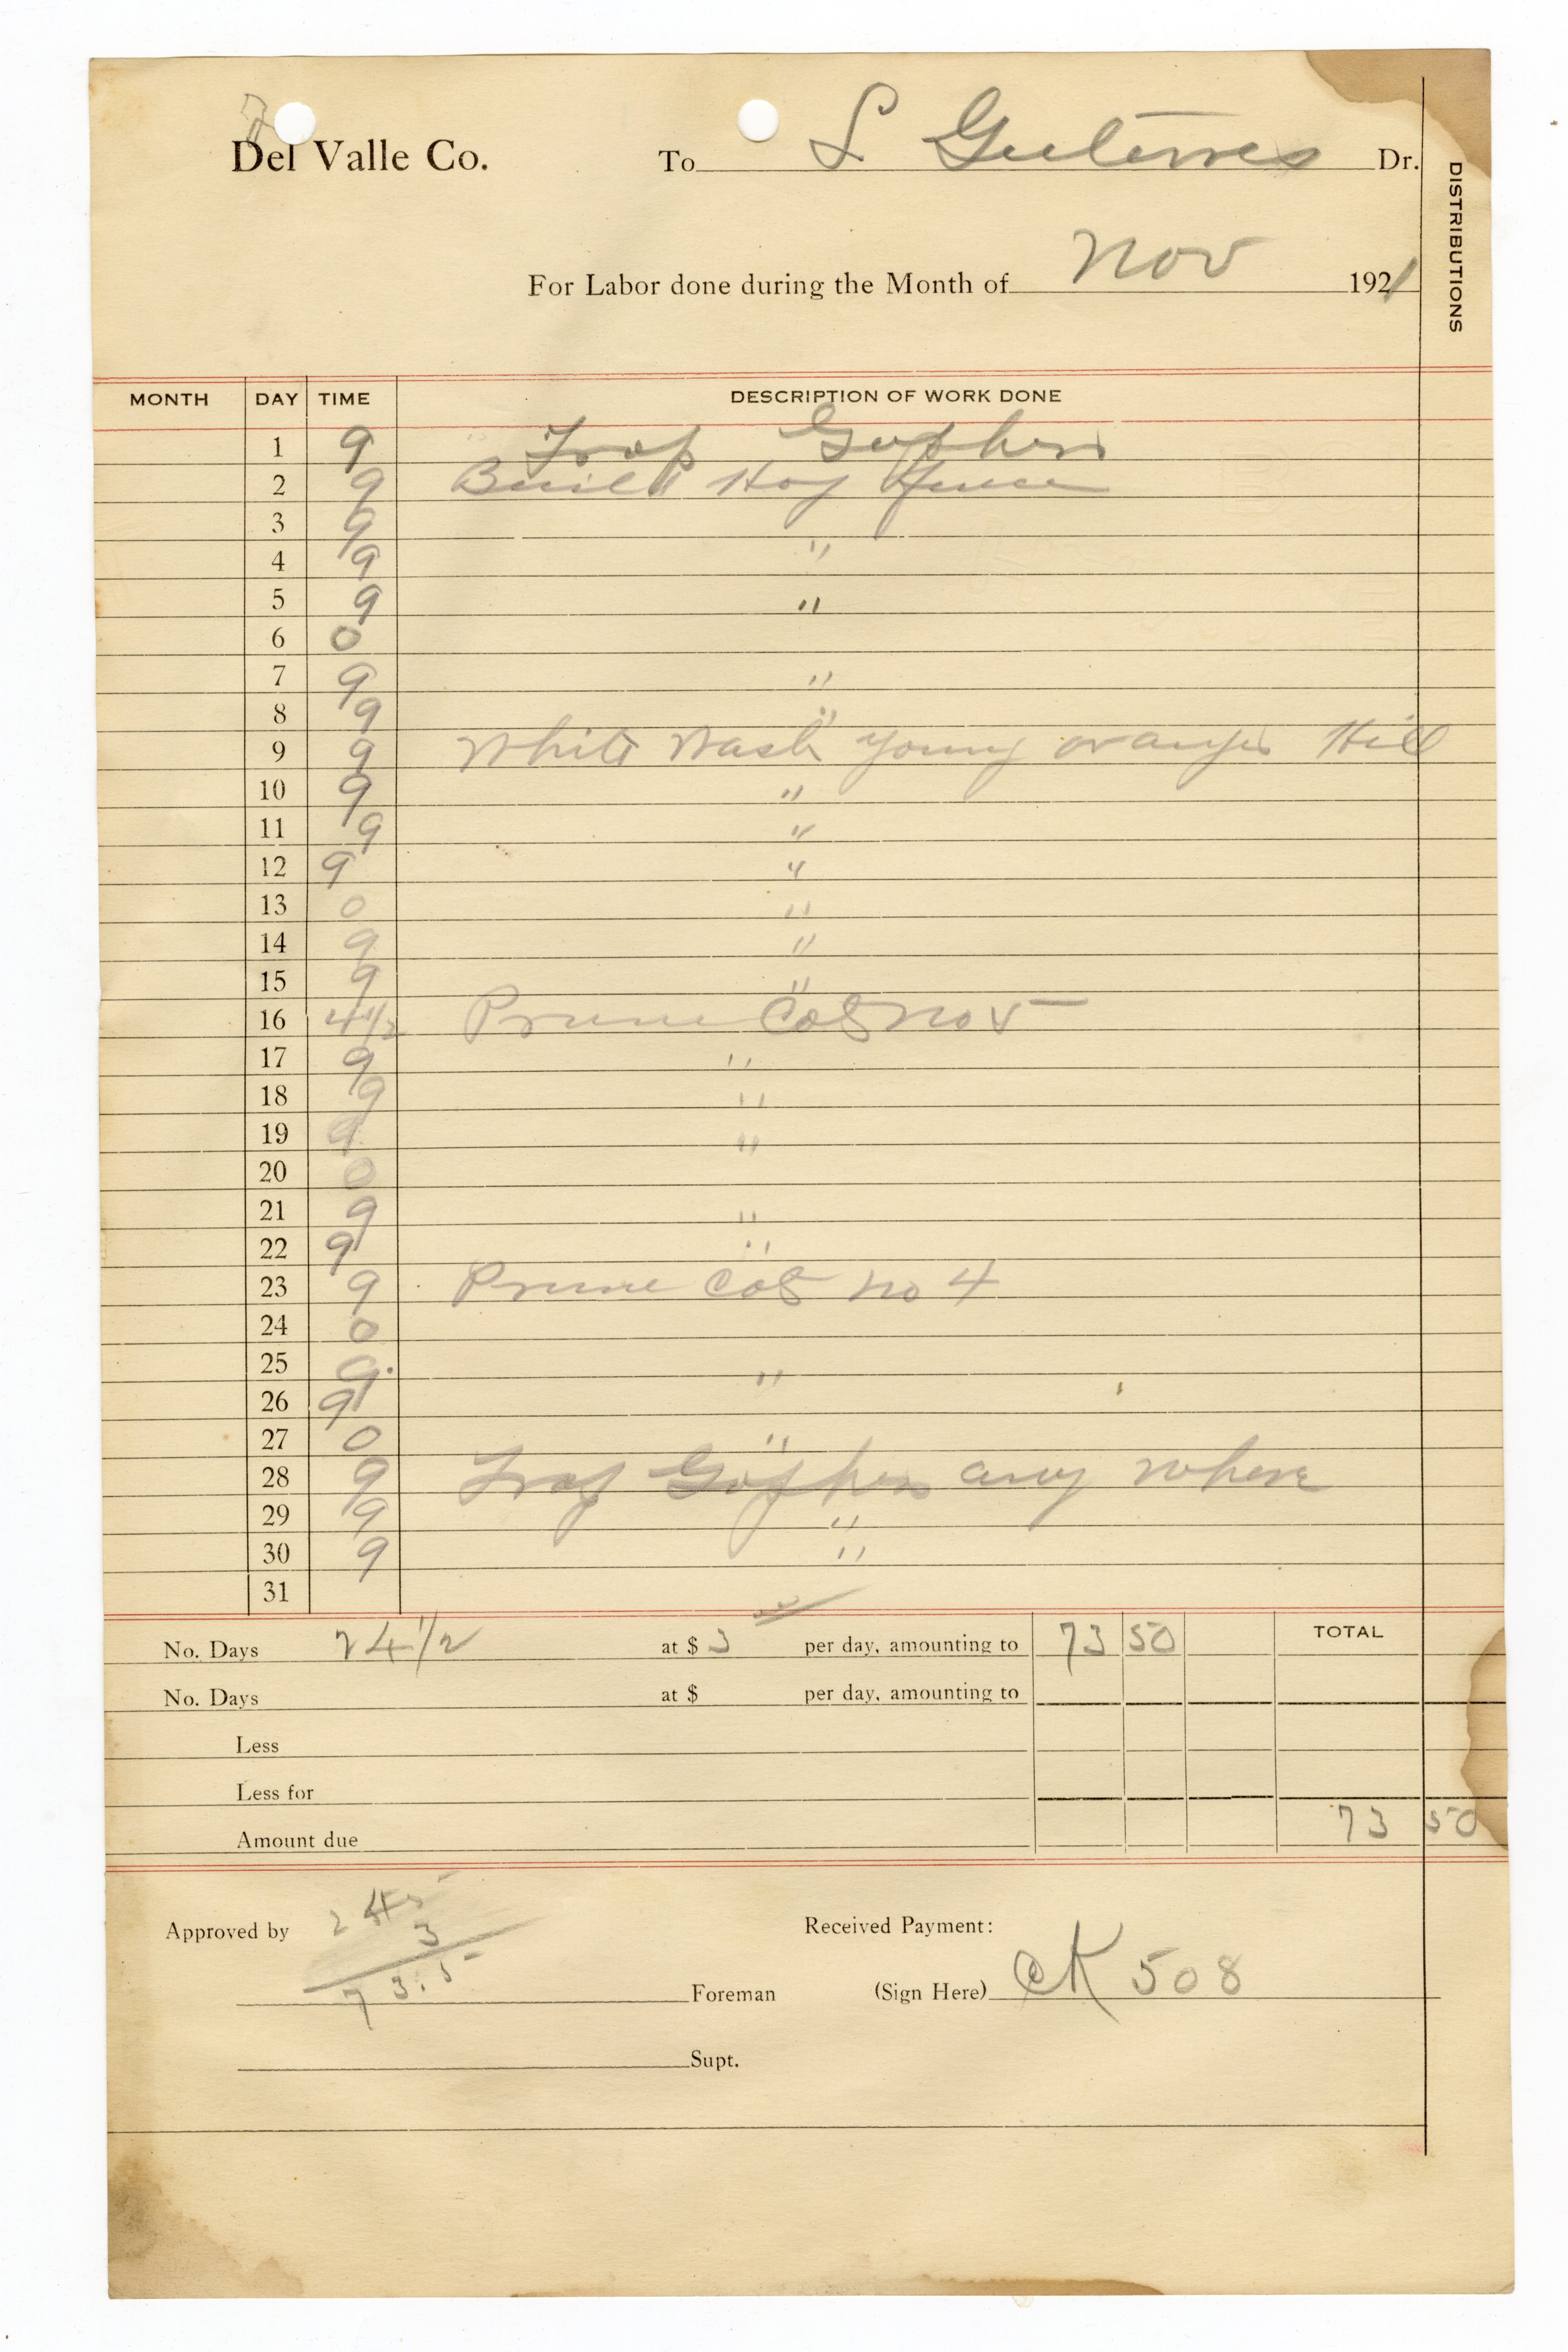 Del Valle Co. To L Guterres Dr.
DISTRIBUTIONS
For Labor done during the Month of Nov 1921
MONTH DAY TIME DESCRIPTION OF WORK DONE
1 9 Trap Gophers
2 9 Build Hog fence
3 9
4 9 "
5 9 "
6 0
7 9 "
8 9 "
9 9 White Wash young oranges Hill
10 9 "
11 9 "
12 9 "
13 0 "
14 9 "
15 9 "
16 4 1/2 Prune Cots no 5
17 9 "
18 9 "
19 9 "
20 0
21 9 "
22 9 "
23 9 Prune Cots no 4
24 0
25 9. "
26 9
27 0 "
28 9 Trap Gophers any where
29 9 "
30 9 "
31
No. Days 24 1/2 at $ 3 per day, amounting to 73 50 TOTAL
No. Days at $ per day, amounting to
Less
Less for
Amount due 73 50
245
Approved by 3 Received Payment:
73.5 Foreman (Sign Here) CK 508
Supt.